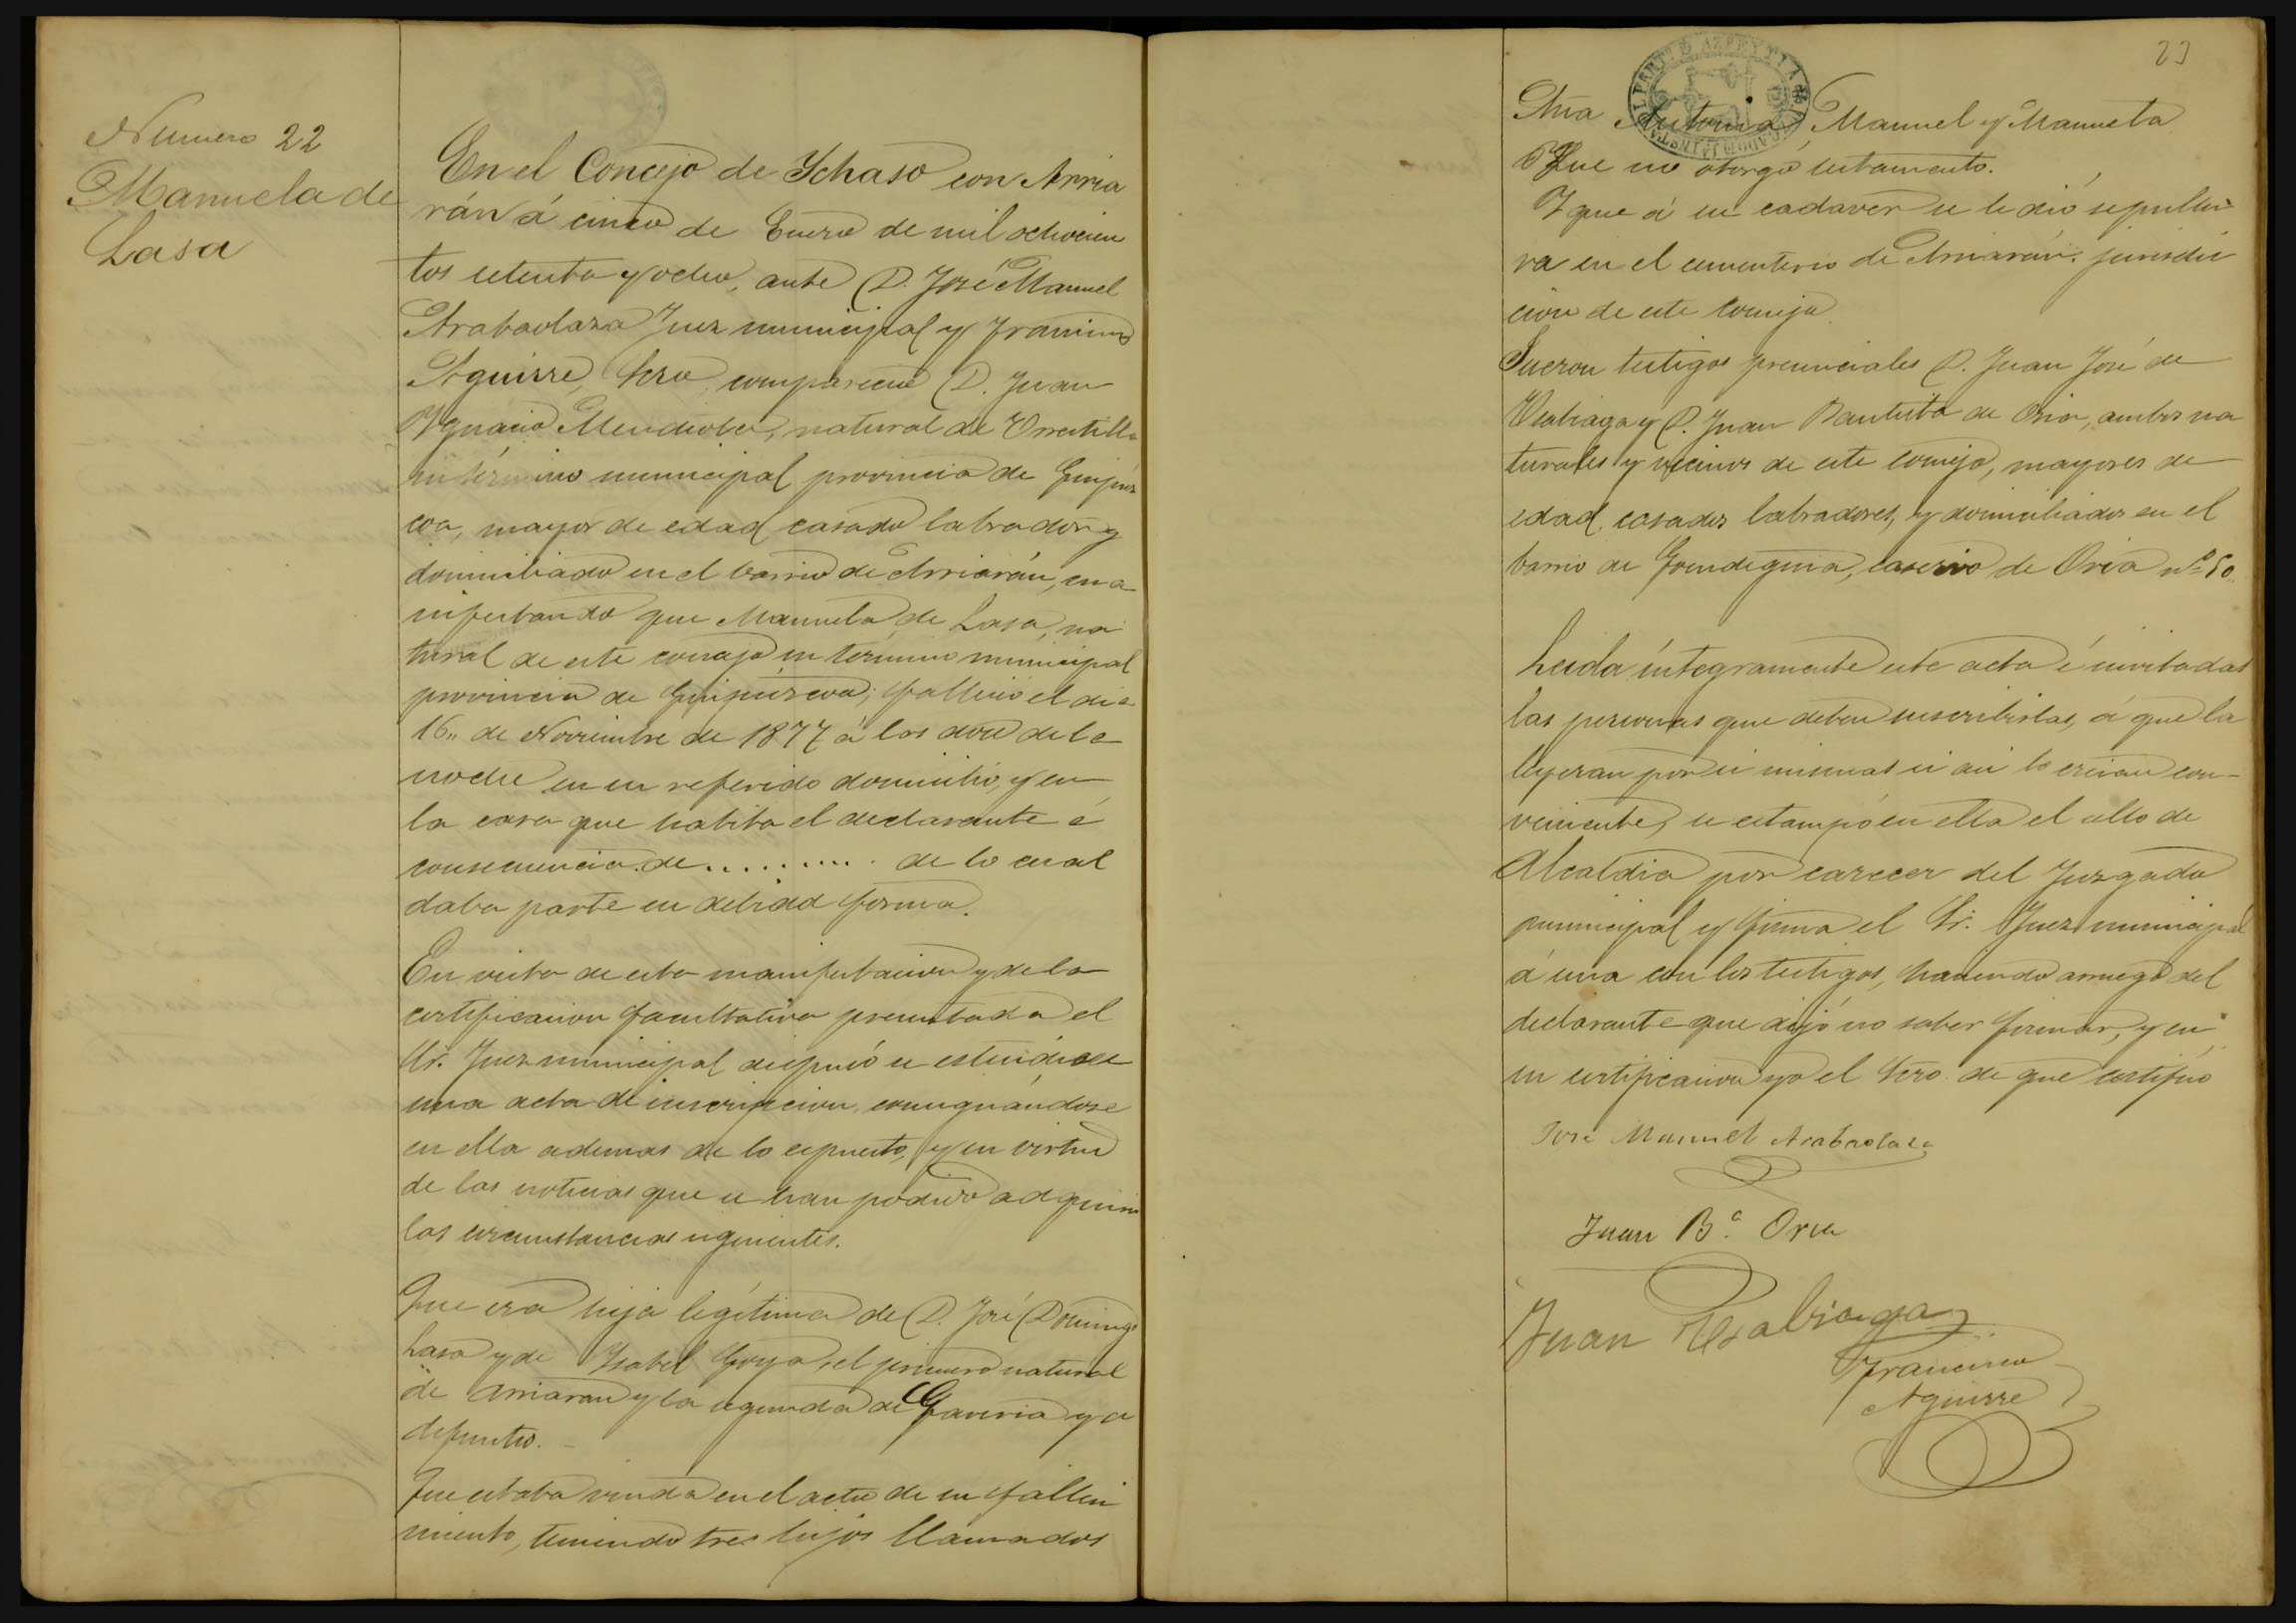 Número 22
Manuela de
Lasa
En el Concejo de Ychaso con Arria
rán á cinco de Enero de mil ochocien
tos setenta y ocho, ante D. José Manuel
Arabaolaza Juez municipal y Francisco
Aguirre, Srio, compareció D. Juan
Ygnacio Mendiola, natural de Orrestilla
su término municipal provincia de Guipúz
coa, mayor de edad casado labrador y
domiciliado en el barrio de Arriarán, ma
nifestando que Manuela de Lasa, na
tural de este concejo su termino municipal
provincia de Guipúzcoa, falleció el dia
16,, de Noviembre de 1877 á las doce de la
noche en su referido domicilio, y en
la casa que habita el declarante á
consecuencia de .......... de lo cual
daba parte en debida forma.
En vista de esta manifestacion y de la
certificacion facultativa presentada el
Sr. Juez municipal dispusó se estendiese
una acta de inscripcion, consignandose
en ella ademas de lo espuesto, y en virtud
de las noticias que se han podido adquirir
las circunstancias siguientes.
Que era hija legítima de D. José Domingo
Lasa y de Ysabel Goya, el primero natural
de Arriaran y la segunda de Gaviria ya
difuntos.
Que estaba viuda en el acto de su falleci
miento, teniendo tres hijos llamados
23
PART. D AZPEYTIA
Ana Antonia, Manuel y Manuela
Que no otorgó testamento.
Y que á su cadaver se le dió sepultu
ra en el cementerio de Arriarán. jurisdic
cion de este concejo
Fueron testigos presenciales D. Juan José de
Usabiaga y D. Juan Bautista de Oria, ambos na
turales y vecinos de este concejo, mayores de
edad, casados labradores, y domiciliados en el
barrio de caserio de Oria nº 50.
Leida íntegramente este acta é invitadas
las personas que deben suscribirlas, á que la
leyeran por si mismas si asi lo creian con-
veniente, se estampó en ella el sello de
Alcaldia por carecer del Juzgado
municipal y firma el Sr. Juez municipal
á una con los testigos, haciendo á ruego del
declarante que dijó no saber firmar, y en
su certificacion yo el Srio. de que certifico
José Manuel Arabaolaza
Juan B.ª Oria
Juan Usabiaga
Francisco
Aguirre